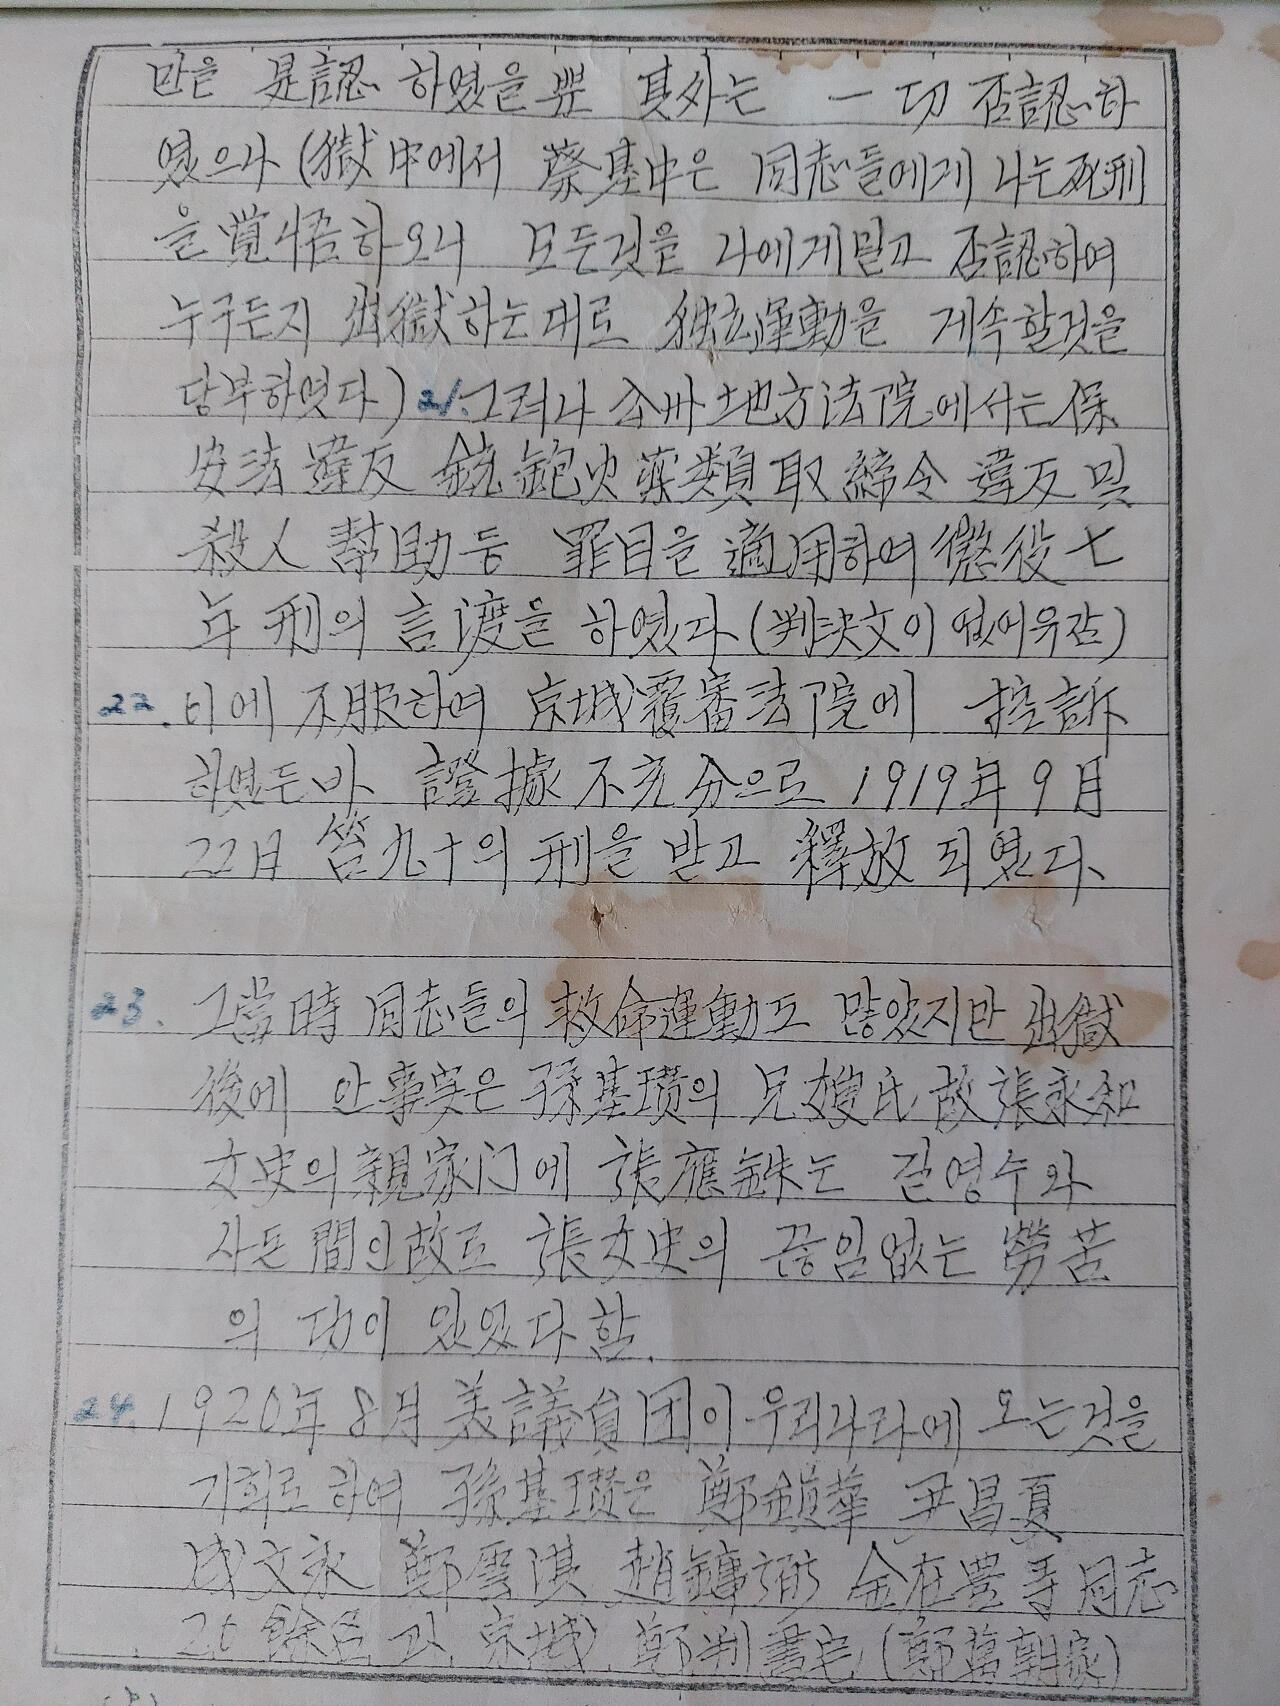 만을 是認 하였을뿐 其外는 一切 否認하
였으나 (獄中에서 蔡基中은 同志들에게 나는 死刑
을 覚悟하오니 모든것을 나에게밀고 否認하여
누구든지 出獄하는대로 独立運動을 게속할것을
당부하였다) 21. 그러나 公州地方法院에서는 保
安法違反 銃砲火薬類取締令違反 및
殺人幇助등 罪目을 適用하여 懲役七
年刑의 言渡을 하였다 (判決文이 없어유감)
22. 이에 不服하여 京城覆審法院에 控訴
하였든바 證據不充分으로 1919年 9月
22日 笞九十의 刑을 받고 釋放되였다.
23. 그當時 同志들의 救命運動도 많았지만 出獄
後에 안事実은 孫基瓚의 兄嫂氏 故張永知
女史의 親家门에 張應銖는 길영수와
사돈間인故로 張女史의 끊임없는 勞苦
의 功이 있었다 함.
24. 1920年 8月 美議員団이 우리나라에 오는것을
기회로 하여 孫基瓚은 鄭鎮華 尹昌夏
成文永 鄭雲淇 趙鏞弼 金在豊 等 同志
20餘名과 京城 鄭判書宅 (鄭萬朝家)